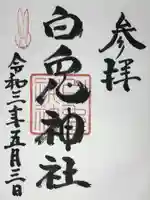 参拝
白兎神社
令和三年五月三日